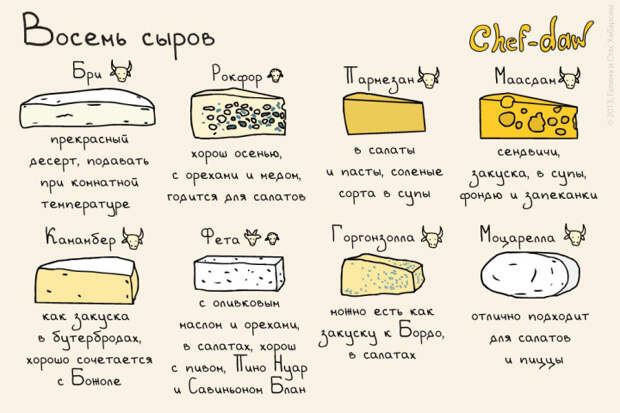 Восемь сыров
Chef-daw
Бри
прекрасный
десерт, подавать
при комнатной
температуре
Рокфор
хорош осенью,
с орехами и медом,
годится для салатов
Пармезан
в салаты
и пасты, соленые
сорта в супы
Маасдам
сендвичи,
закуска, в супы,
фондю и запеканки
Камамбер
как закуска
в бутербродах,
хорошо сочетается
с Божоле
Фета
с оливковым
маслом и орехами,
в салатах, хорош
с пивом, Пино Нуар
и Савиньоном Блан
Горгонзолла
можно есть как
закуску к Бордо,
в салатах
Моцарелла
отлично подходит
для салатов
и пиццы